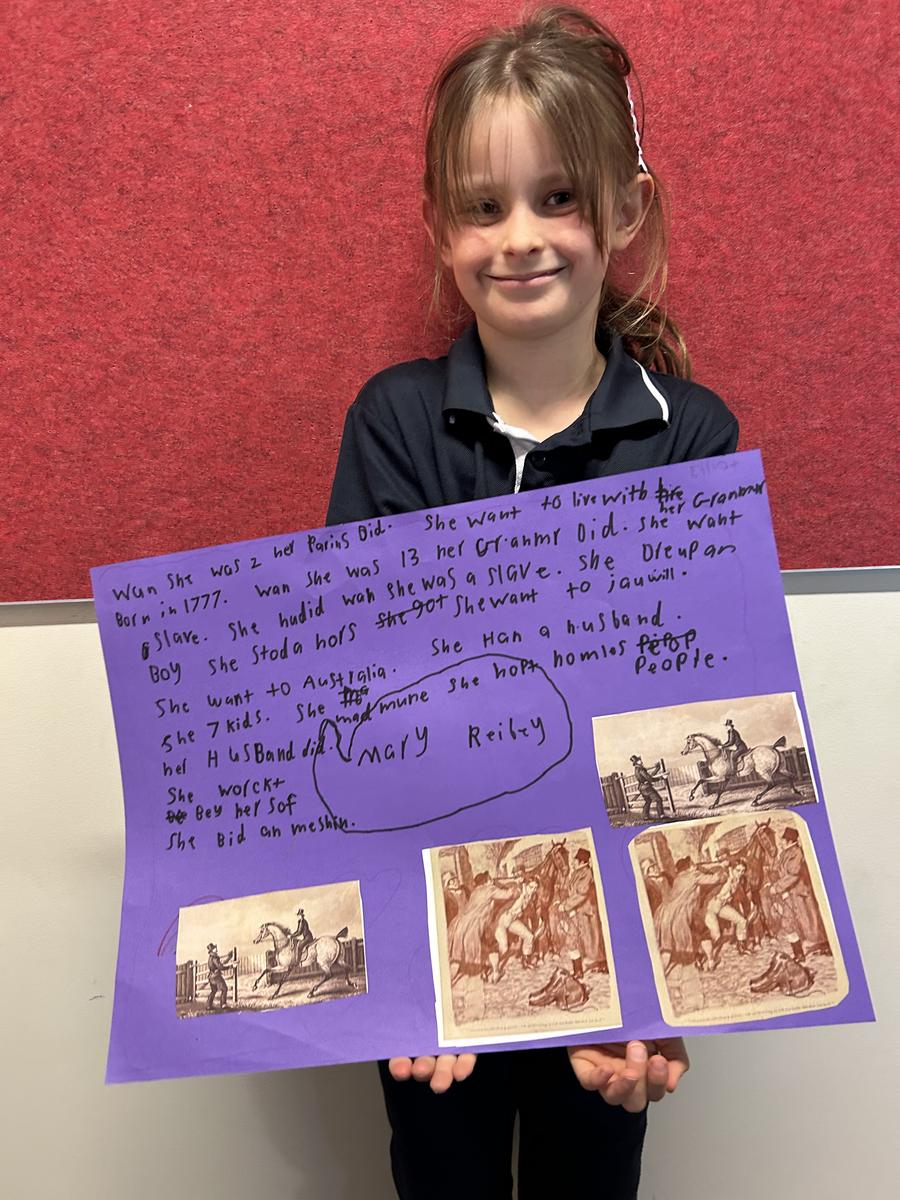 Wan She was 2 her Parins Did. She want to live with her Granmr
Born in 1777. wan she was 13 her Granmr Did. she want
Slave. She hadid wan she was a slave. she Dreupan
Boy she Stoda hors she got She want to jauwill.
She want to Australia. She Han a husband.
She 7 kids. She mad mune she hopt homles People.
her HusBand did.
Mary Reibey
She worckt
Bey her Sof
She Bid an meshin.